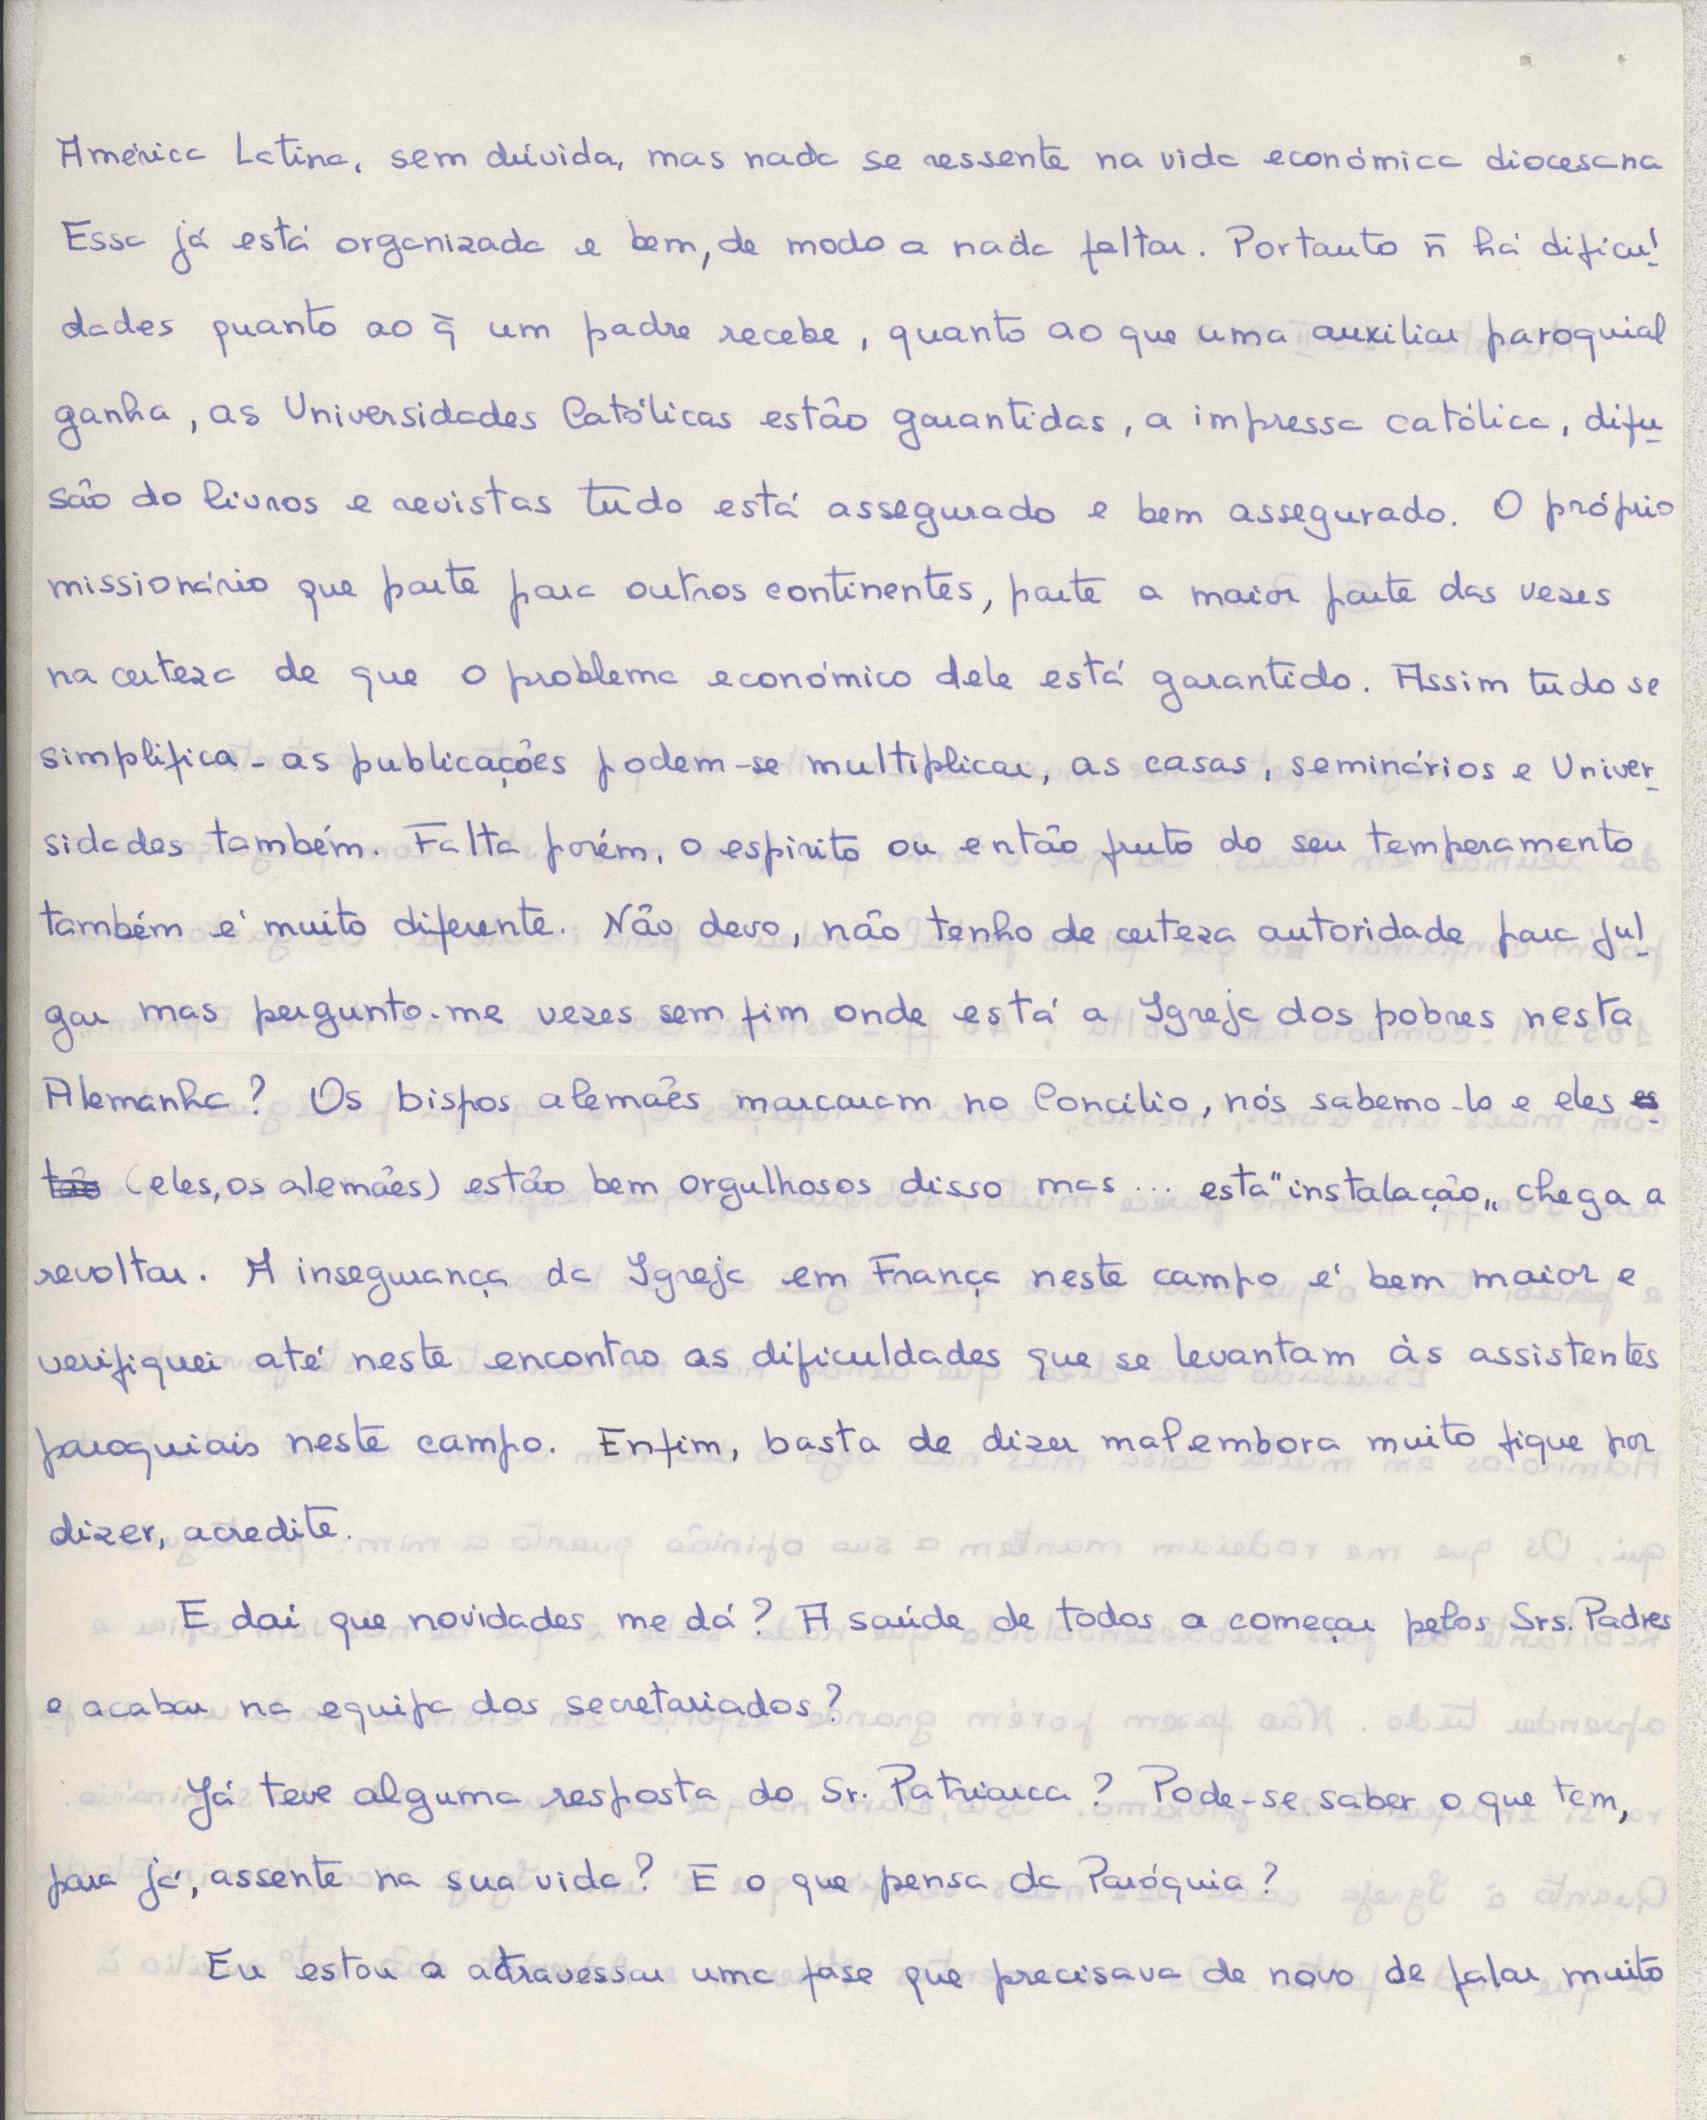 América Latina, sem dúvida, mas nada se ressente na vida económica diocesana
Essa já está organizada e bem, de modo a nada faltar. Portanto n̄ há dificul
dades quanto ao q̄ um padre recebe, quanto ao que uma auxiliar paroquial
ganha, as Universidades Católicas estão garantidas, a impressa católica, difu
são do livros e revistas tudo está assegurado e bem assegurado. O próprio
missionário que parte para outros continentes, parte a maior parte das vezes
na certeza de que o problema económico dele está garantido. Assim tudo se
simplifica - as publicações podem-se multiplicar, as casas, seminários e Univer
sidades também. Falta porém, o espirito ou então fruto do seu temperamento
também é muito diferente. Não devo, não tenho de certeza autoridade para jul
gar mas pergunto-me vezes sem fim onde está a Igreja dos pobres nesta
Alemanha? Os bispos alemães marcaram no Concílio, nós sabemo-lo e eles es
tão (eles, os alemães) estão bem orgulhosos disso mas ... esta "instalação„ chega a
revoltar. A insegurança da Igreja em França neste campo é bem maior e
verifiquei até neste encontro as dificuldades que se levantam às assistentes
paroquiais neste campo. Enfim, basta de dizer mal embora muito fique por
dizer, acredite.
E daí que novidades me dá? A saúde de todos a começar pelos Srs. Padres
e acabar na equipa dos secretariados?
Já teve alguma resposta do Sr. Patriarca? Pode-se saber o que tem,
para já, assente na sua vida? E o que pensa da Paróquia?
Eu estou a atravessar uma fase que precisava de novo de falar muito